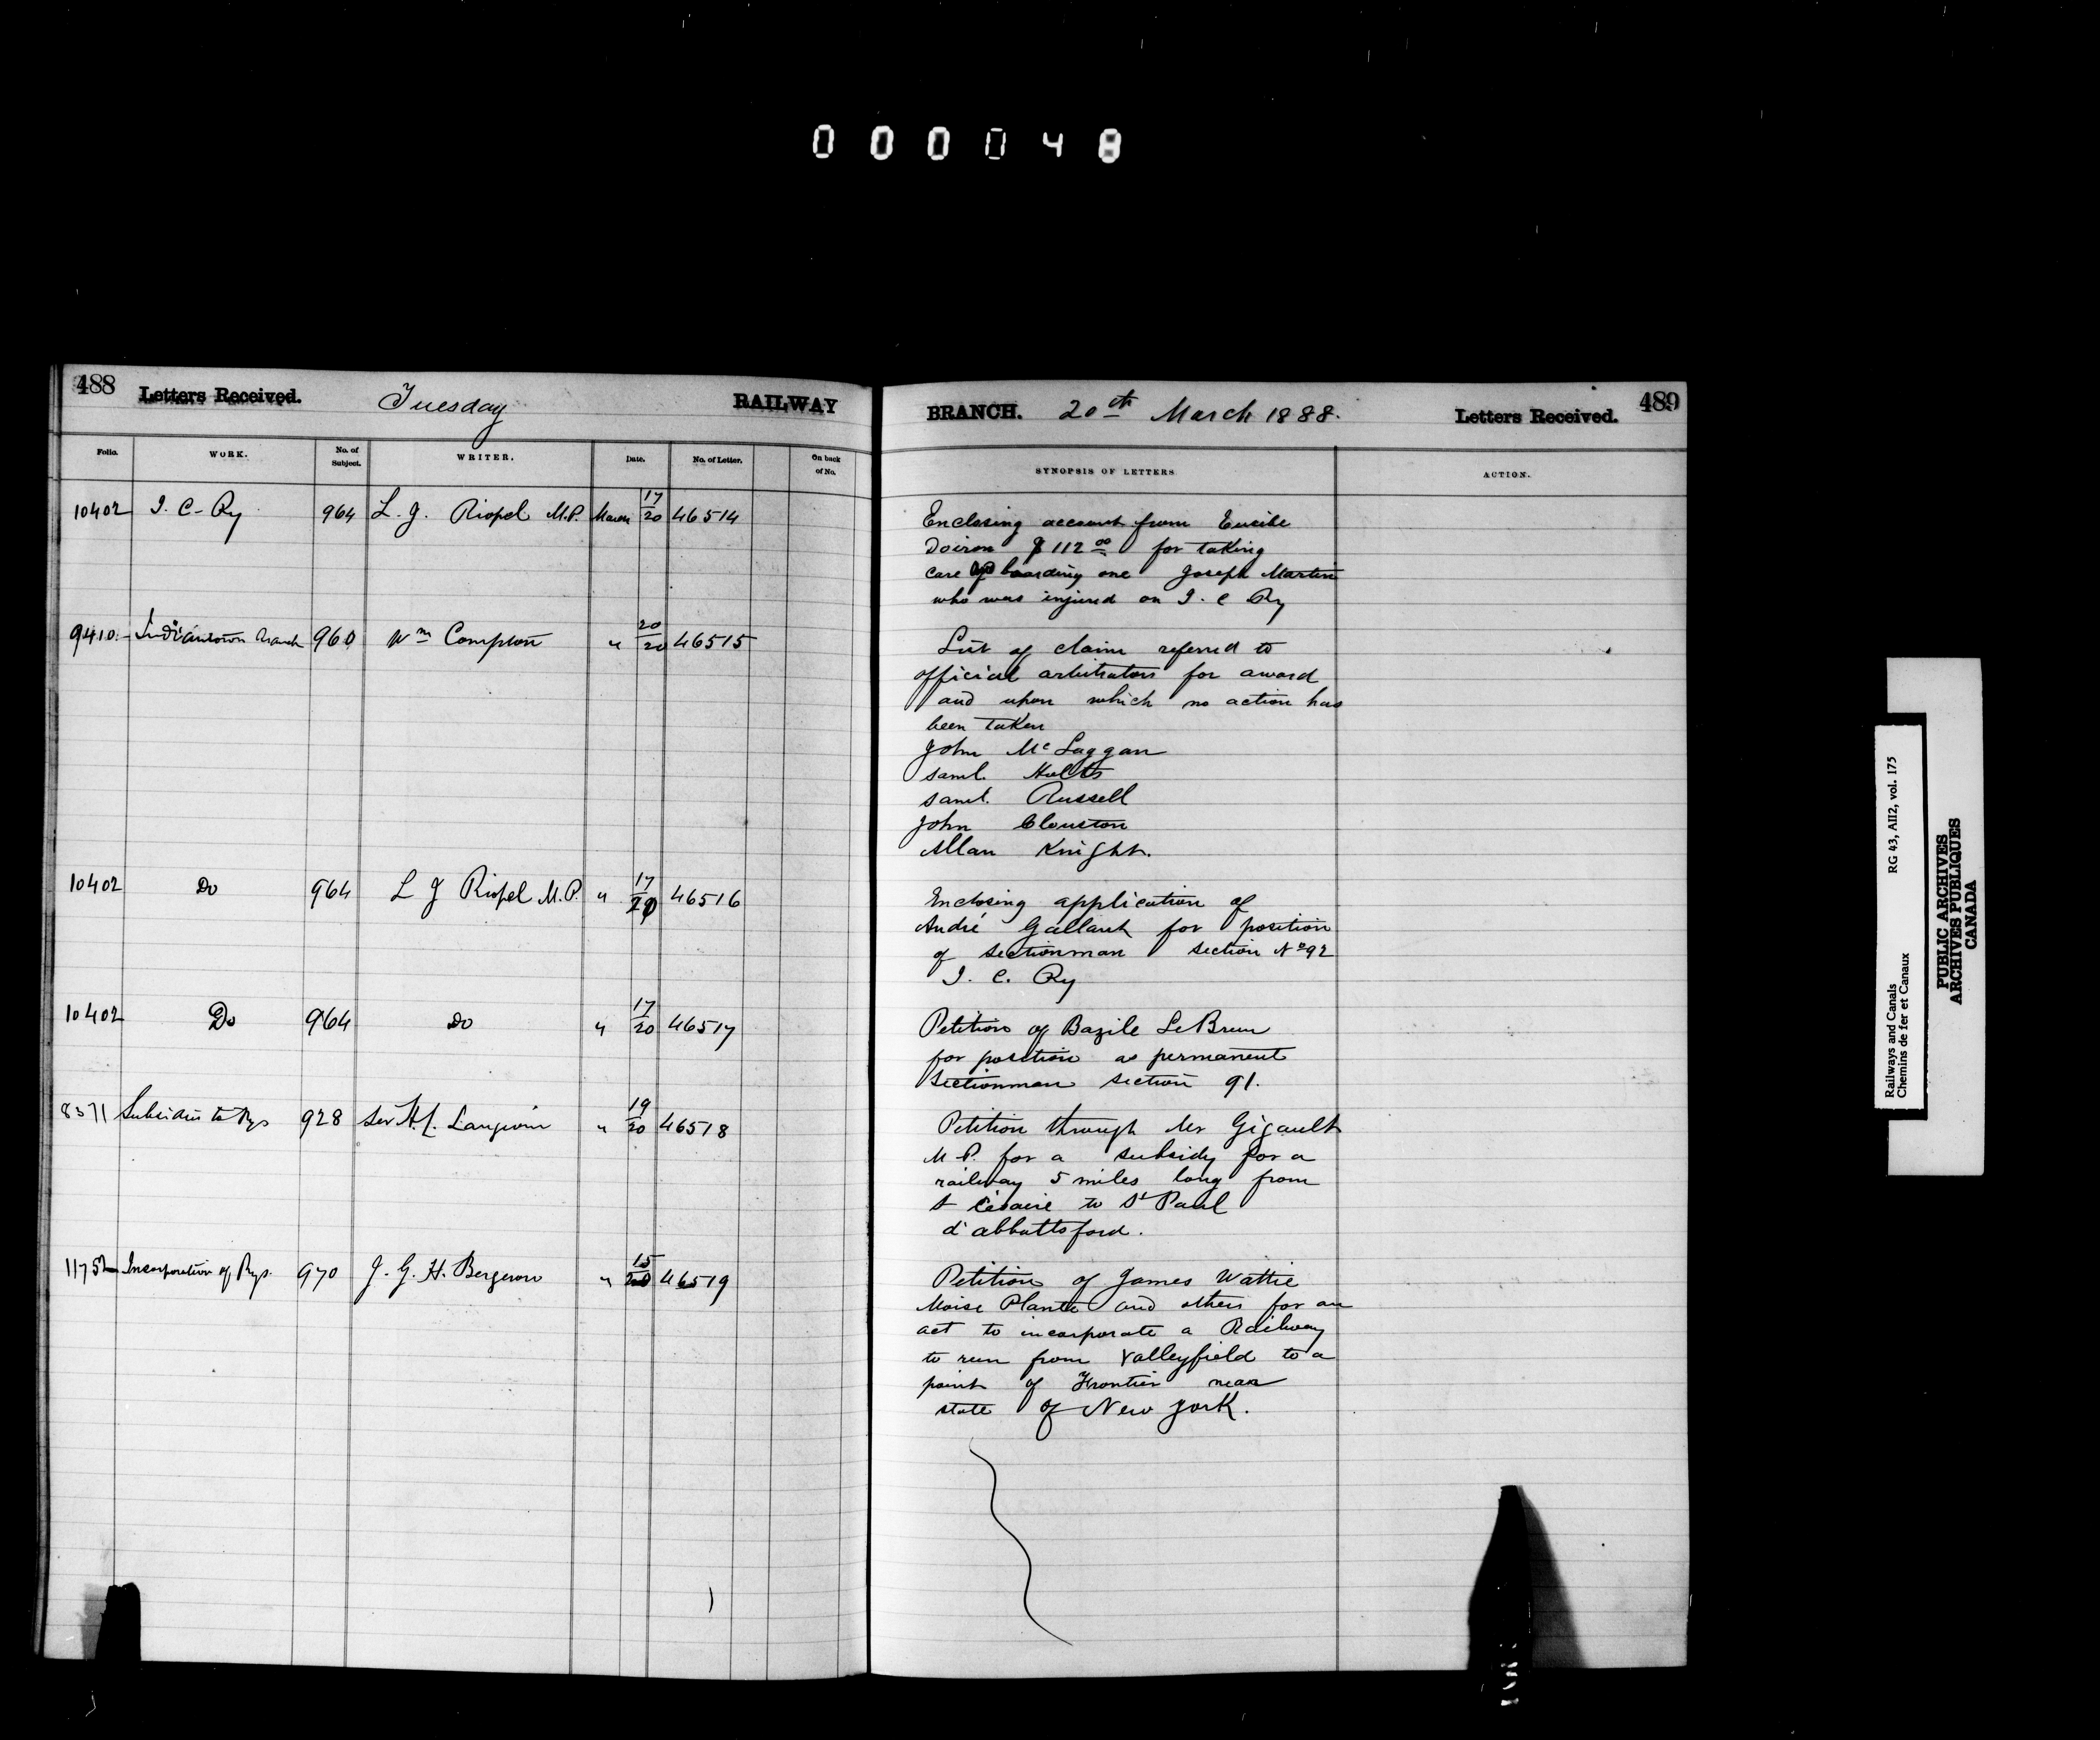 000048
488 Letters Received. Tuesday RAILWAY
Folio. WORK. No. of Subject. WRITER. Date. No. of Letter. On back of No.
10402 I. C. Ry 964 L. J. Riopel M.P. March 17/20 46514
9410 Indiantown Branch 960 Wm Compton " 20/20 46515
10402 Do 964 L J Riopel M.P. " 17/20 46516
10402 Do 964 Do " 17/20 46517
8371 Subsidies to Rys 928 Sir H. L. Langevin " 19/20 46518
11752 Incorporation of Rys. 970 J. G. H. Bergeron " 15/20 46519
BRANCH. 20th March 1888. Letters Received. 489
SYNOPSIS OF LETTERS ACTION.
Enclosing account from Eusibe
Doiron $112 00 for taking
care and boarding one Joseph Martin
who was injured on I. C Ry
List of claims referred to
official arbitrators for award
and upon which no action has
been taken
John McLaggan
Saml. Holts
Saml. Russell
John Clouston
Allan Knight.
Enclosing application of
André Gallant for position
of sectionman section No 92
I. C. Ry
Petition of Bazile LeBrun
for position as permanent
Sectionman section 91.
Petition through Mr Gigault
M P. for a subsidy for a
railway 5 miles long from
St Césaire to St Paul
d'abbottsford.
Petition of James Wattie
Moise Plante and others for an
act to incorporate a Railway
to run from Valleyfield to a
point of Frontier near
state of New York.
Railways and Canals RG 43, AII2, vol. 175
Chemins de fer et Canaux
PUBLIC ARCHIVES
ARCHIVES PUBLIQUES
CANADA